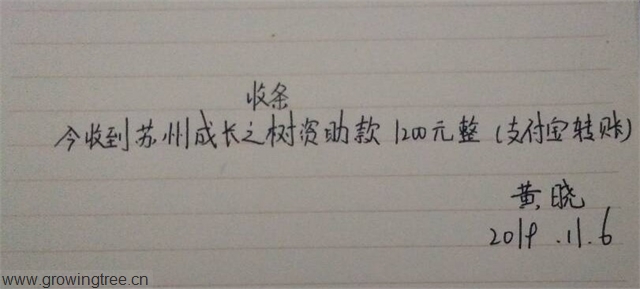 收条
今收到苏州成长之树资助款1200元整(支付宝转账)
黄晓
2019.11.6
www.growingtree.cn